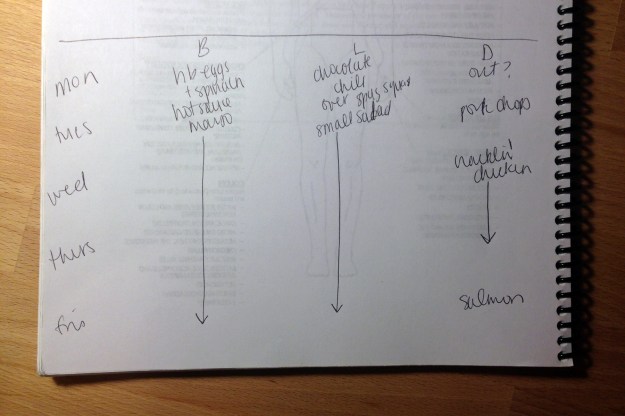 B L D
mon hb eggs chocolate out?
+ spinach chili
hot sauce over spag squash
mayo small salad
tues pork chops
wed cracklin' chicken
thurs
fri salmon